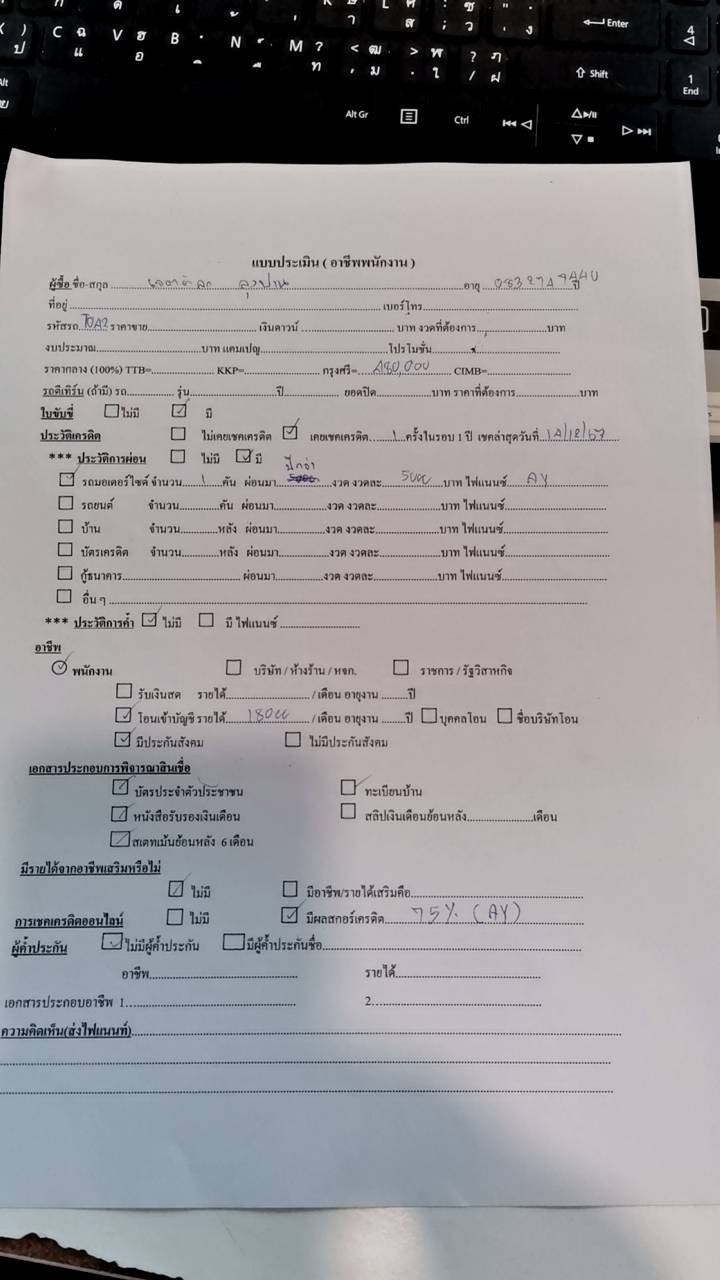 Enter
Shift
Alt Gr
Ctrl
End
แบบประเมิน ( อาชีพพนักงาน )
ผู้ซื้อ ชื่อ-สกุล อายุ ปี
ที่อยู่ เบอร์โทร
รหัสรถ TOA2 ราคาขาย เงินดาวน์ บาท งวดที่ต้องการ บาท
งบประมาณ บาท แคมเปญ โปรโมชั่น
ราคากลาง (100%) TTB= KKP= กรุงศรี= 480,000 CIMB=
รถตีเทิร์น (ถ้ามี) รถ รุ่น ปี ยอดปิด บาท ราคาที่ต้องการ บาท
ใบขับขี่ ไม่มี มี
ประวัติเครดิต ไม่เคยเชคเครดิต เคยเชคเครดิต 1 ครั้งในรอบ 1 ปี เชคล่าสุดวันที่
*** ประวัติการผ่อน ไม่มี มี
ปีกว่า
รถมอเตอร์ไซค์ จำนวน 1 คัน ผ่อนมา งวด งวดละ 5000 บาท ไฟแนนซ์ AY
รถยนต์ จำนวน คัน ผ่อนมา งวด งวดละ บาท ไฟแนนซ์
บ้าน จำนวน หลัง ผ่อนมา งวด งวดละ บาท ไฟแนนซ์
บัตรเครดิต จำนวน หลัง ผ่อนมา งวด งวดละ บาท ไฟแนนซ์
กู้ธนาคาร ผ่อนมา งวด งวดละ บาท ไฟแนนซ์
อื่น ๆ
*** ประวัติการค้ำ ไม่มี มี ไฟแนนซ์
อาชีพ
พนักงาน บริษัท / ห้างร้าน / หจก. ราชการ / รัฐวิสาหกิจ
รับเงินสด รายได้ / เดือน อายุงาน ปี
โอนเข้าบัญชี รายได้ 18000 / เดือน อายุงาน ปี บุคคลโอน ชื่อบริษัทโอน
มีประกันสังคม ไม่มีประกันสังคม
เอกสารประกอบการพิจารณาสินเชื่อ
บัตรประจำตัวประชาชน ทะเบียนบ้าน
หนังสือรับรองเงินเดือน สลิปเงินเดือนย้อนหลัง เดือน
สเตทเม้นย้อนหลัง 6 เดือน
มีรายได้จากอาชีพเสริมหรือไม่
ไม่มี มีอาชีพ/รายได้เสริมคือ
การเชคเครดิตออนไลน์ ไม่มี มีผลสกอร์เครดิต 75% (AY)
ผู้ค้ำประกัน ไม่มีผู้ค้ำประกัน มีผู้ค้ำประกันชื่อ
อาชีพ รายได้
เอกสารประกอบอาชีพ 1 2
ความคิดเห็น(ส่งไฟแนนท์)